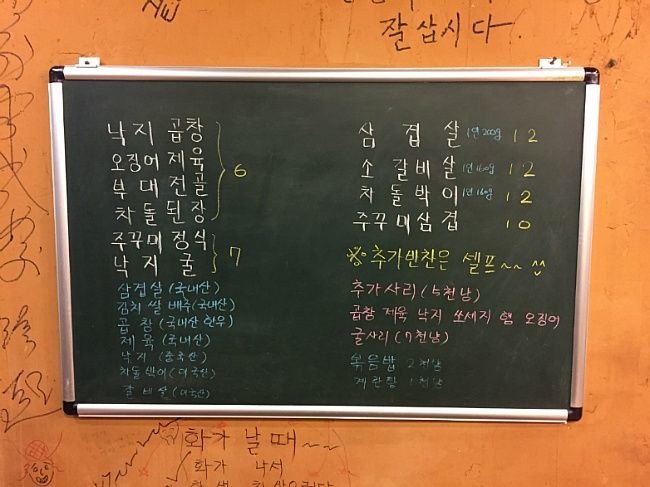 잘삽시다.
낙지 곱창
오징어 제육
부대전골
차돌된장
6
주꾸미 정식
낙지 굴
7
삼겹살 (국내산)
김치 쌀 배추 (국내산)
곱창 (국내산 한우)
제육 (국내산)
낙지 (중국산)
차돌박이 (미국산)
갈비살 (미국산)
삼겹살 1인 200g 12
소갈비살 1인 160g 12
차돌박이 1인 160g 12
주꾸미삼겹 10
※ 추가반찬은 셀프~~ ^^
추가사리 (5천냥)
곱창 제육 낙지 쏘세지 햄 오징어
굴사리 (7천냥)
볶음밥 2천냥
계란찜 1천냥
화가 날 때~~
화가 나서